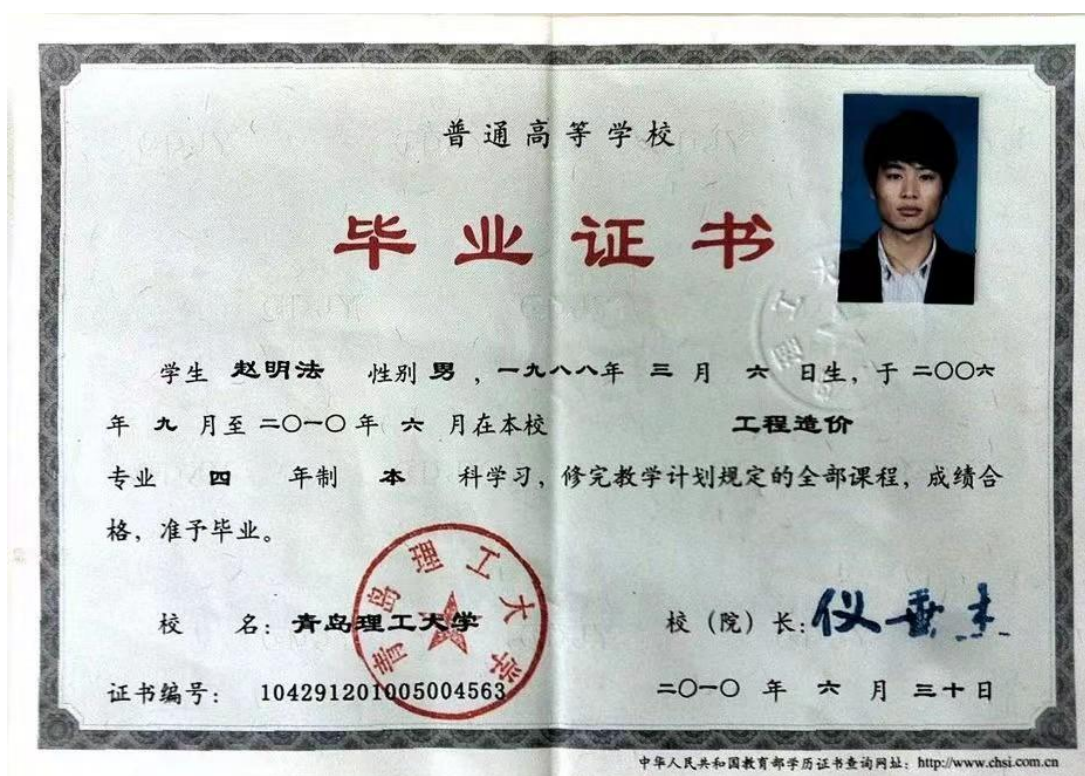 普通高等学校
毕业证书
学生 赵明法 性别 男 ，一九八八年 三 月 六 日生，于 二〇〇六
年 九 月至 二〇一〇 年 六 月在本校 工程造价
专业 四 年制 本 科学习，修完教学计划规定的全部课程，成绩合
格，准予毕业。
校 名：青岛理工大学 校（院）长：仪垂杰
青岛理工大学
证书编号： 104291201005004563 二〇一〇 年 六 月 三十日
中华人民共和国教育部学历证书查询网址：http://www.chsi.com.cn